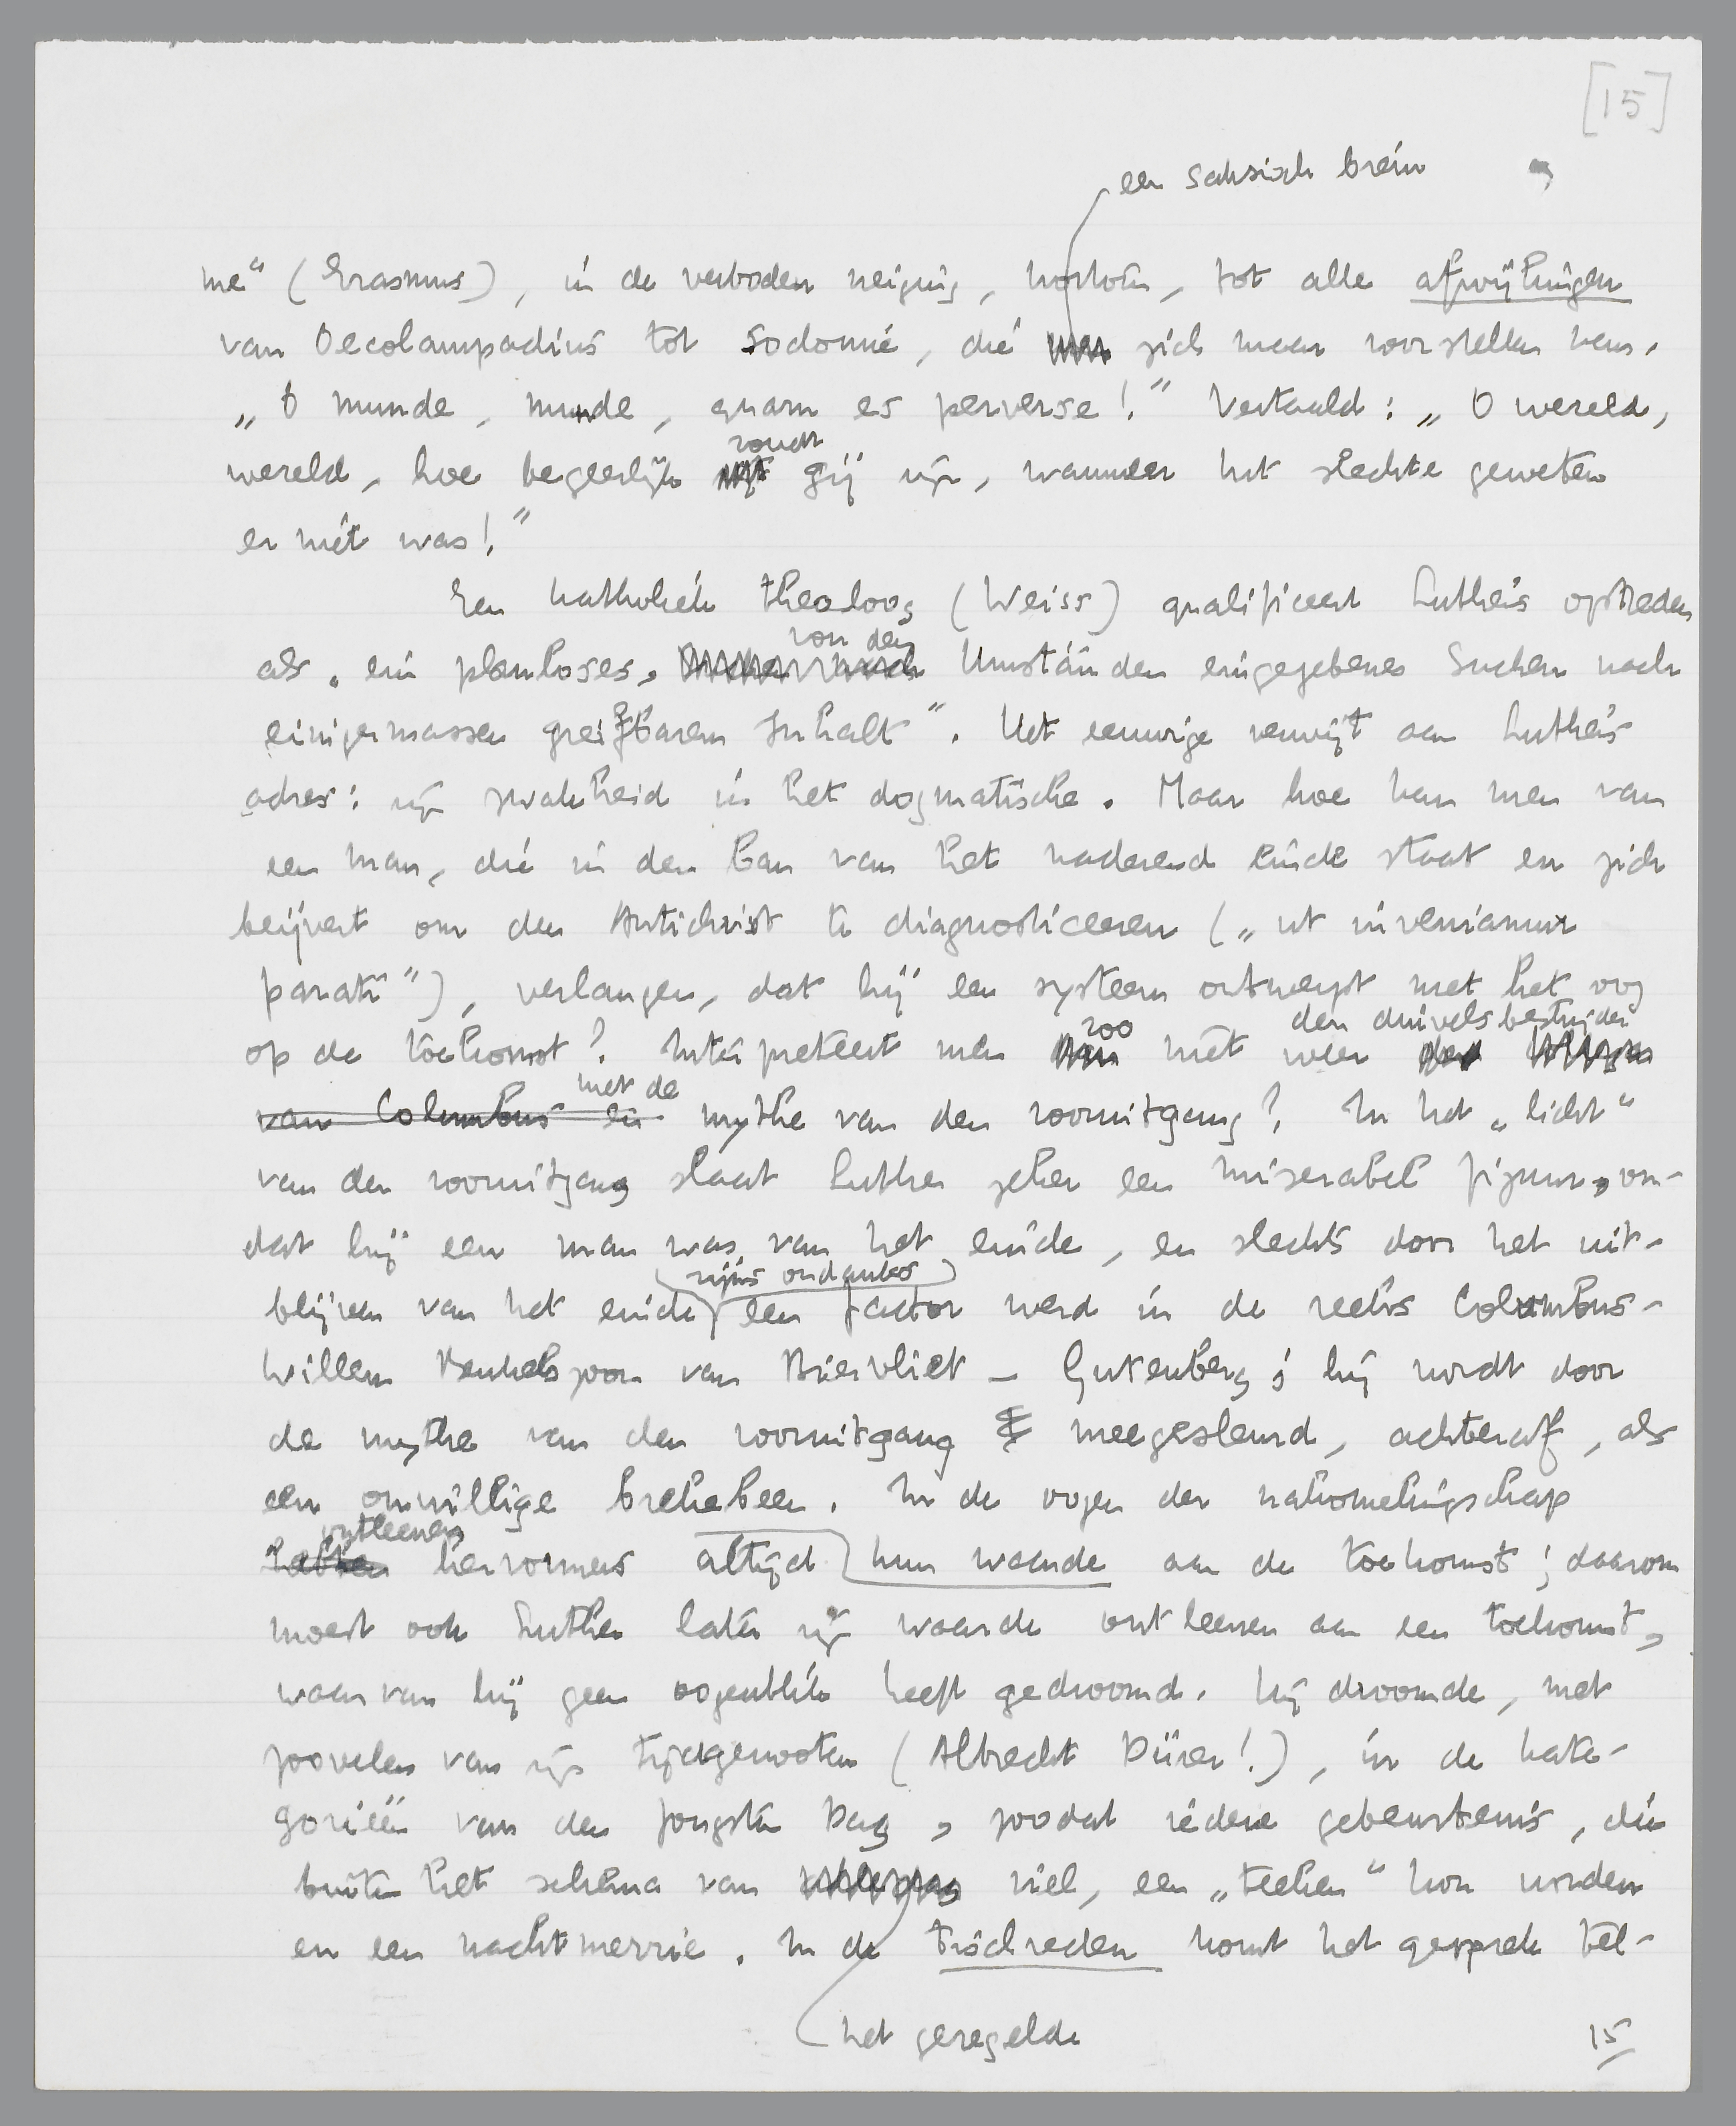 [15]
een Saksisch brein
me“ (Erasmus), in de verboden neiging, kortom, tot alle afwijkingen
van Oecolampadius tot Sodomie, die zich maar voorstellen kan.
„O munde, munde, quam es perverse!” Vertaald: „O wereld,
zoudt
wereld, hoe begeerlijk gij zijn, wanneer het slechte geweten
er niet was!”
Een katholiek theoloog (Weiss) qualificeert Luther's optreden
von den
als „ein planloses, Umständen eingegebenes Suchen nach
einigermassen greifbarem Inhalt”. Het eeuwige verwijt aan Luther's
adres: zijn zwakheid in het dogmatische. Maar hoe kan men van
een man, die in den ban van het naderend einde staat en zich
beijvert om den Antichrist te diagnosticeeren („ut inveniamur
parati”), verlangen, dat hij een systeem ontwerpt met het oog
zoo den duivelsbestrijder
op de toekomst? Interpreteert men niet weer
met de
van Columbus en mythe van den vooruitgang? In het „licht“
van den vooruitgang slaat Luther zeker een miserabel figuur, om-
dat hij een man was van het einde, en slechts door het uit-
zijns ondanks
blijven van het einde een factor werd in de reeks Columbus-
Willem Beukelszoon van Biervliet – Gutenberg; hij wordt door
de mythe van den vooruitgang meegesleurd, achteraf, als
een onwillige brekebeen. In de oogen der nakomelingschap
ontleenen
hervormers altijd hun waarde aan de toekomst; daarom
moest ook Luther later zijn waarde ontleenen aan een toekomst,
waarvan hij geen oogenblik heeft gedroomd. Hij droomde, met
zoovelen van zijn tijdgenooten (Albrecht Dürer!), in de kate-
gorieën van den Jongsten Dag, zoodat iedere gebeurtenis, die
buiten het schema van viel, een „teeken“ kon worden
en een nachtmerrie. In de Tischreden komt het gesprek tel-
het geregelde
15